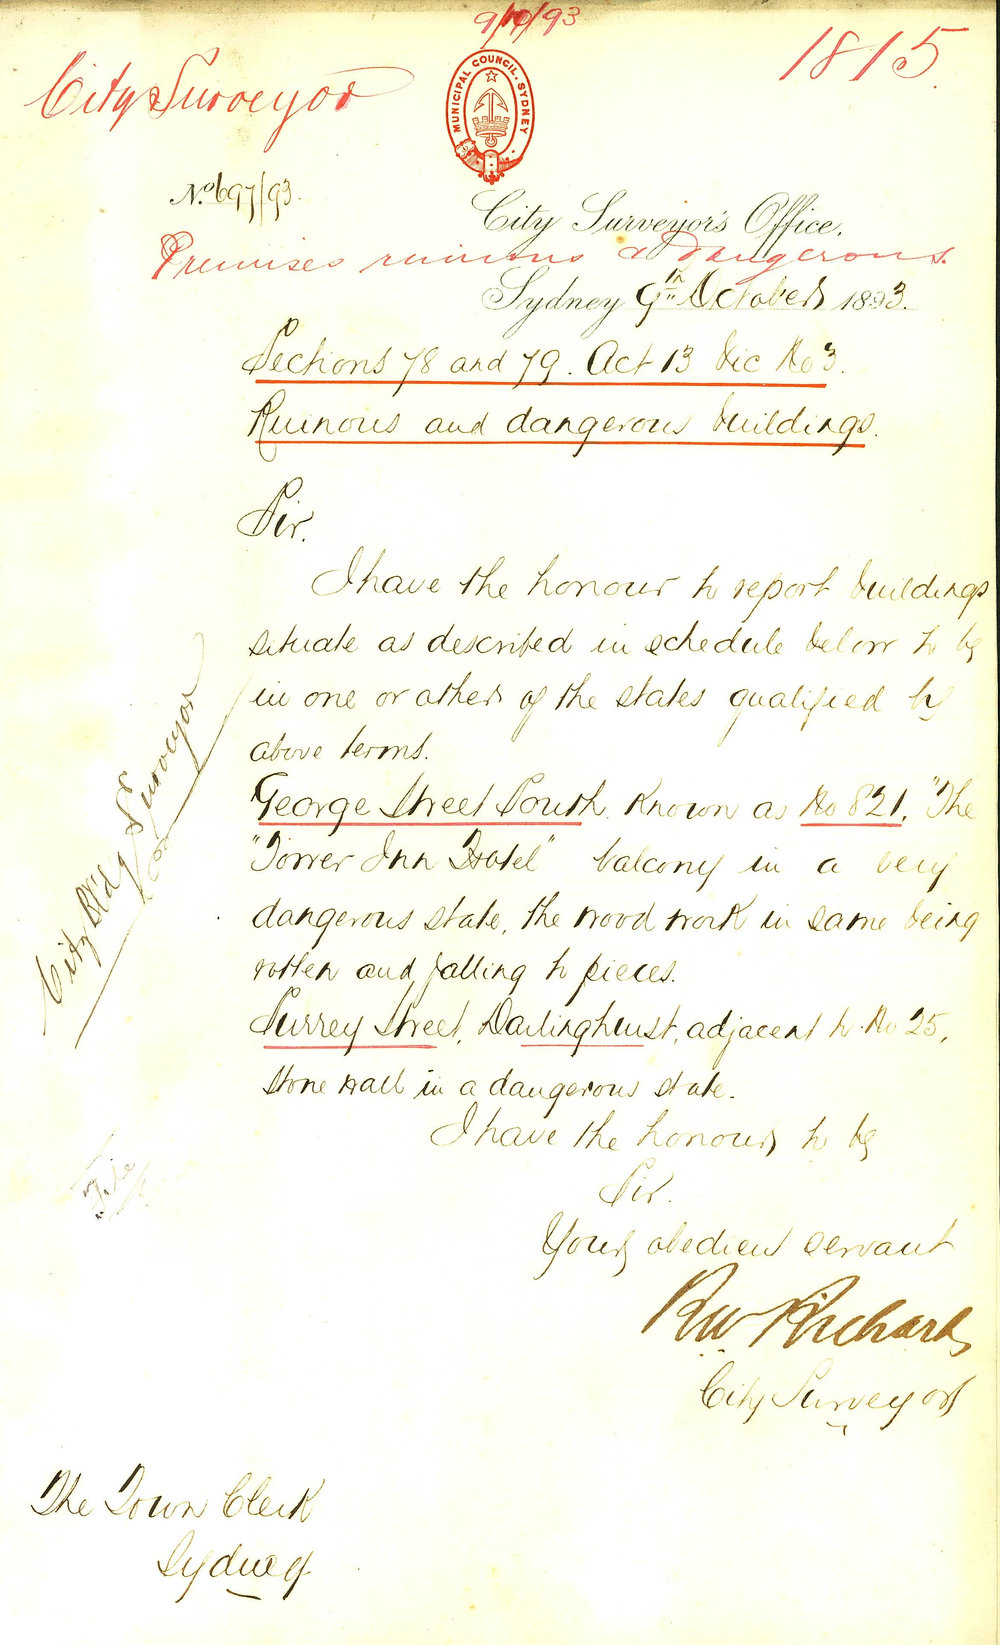 9/10/93
1815
City Surveyor
MUNICIPAL COUNCIL. SYDNEY
No. 697/93.
City Surveyor's Office.
Premises ruinous & dangerous.
Sydney 9th October 1893.
Sections 78 and 79. Act 13 Vic No 3.
Ruinous and dangerous buildings.
Sir.
I have the honour to report buildings
situate as described in schedule below to be
in one or other of the states qualified by
above terms.
George Street South. Known as No 821. "The
"Tower Inn Hotel" balcony in a very
dangerous state, the wood work in same being
rotten and falling to pieces.
Surrey Street, Darlinghurst, adjacent to No 25,
Stone wall in a dangerous state.
I have the honour to be
Sir.
Your obedient servant
RW Richards
City Surveyor
The Town Clerk
Sydney
City Bldg Surveyor
File